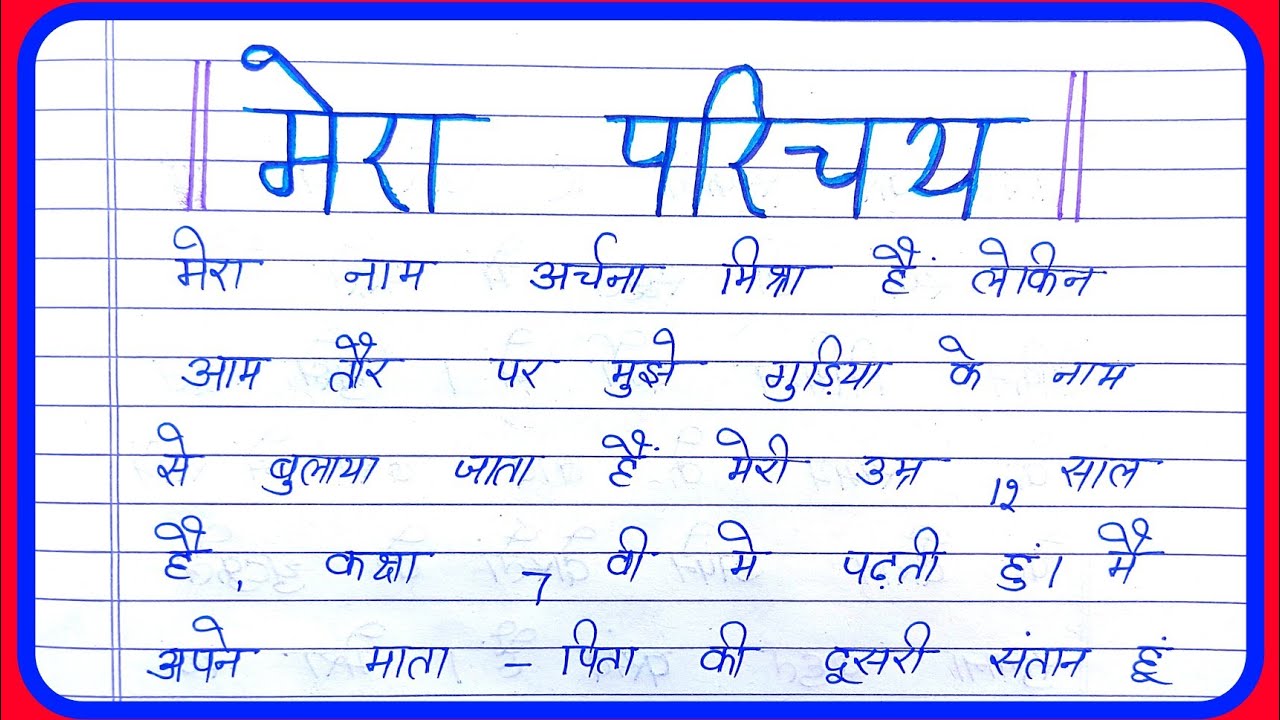 ॥ मेरा परिचय ॥
मेरा नाम अर्चना मिश्रा हैं लेकिन
आम तौर पर मुझे गुड़िया के नाम
से बुलाया जाता हैं मेरी उम्र 12 साल
है, कक्षा 7 वी मे पढ़ती हुं। मै
अपने माता - पिता की दूसरी संतान हूं